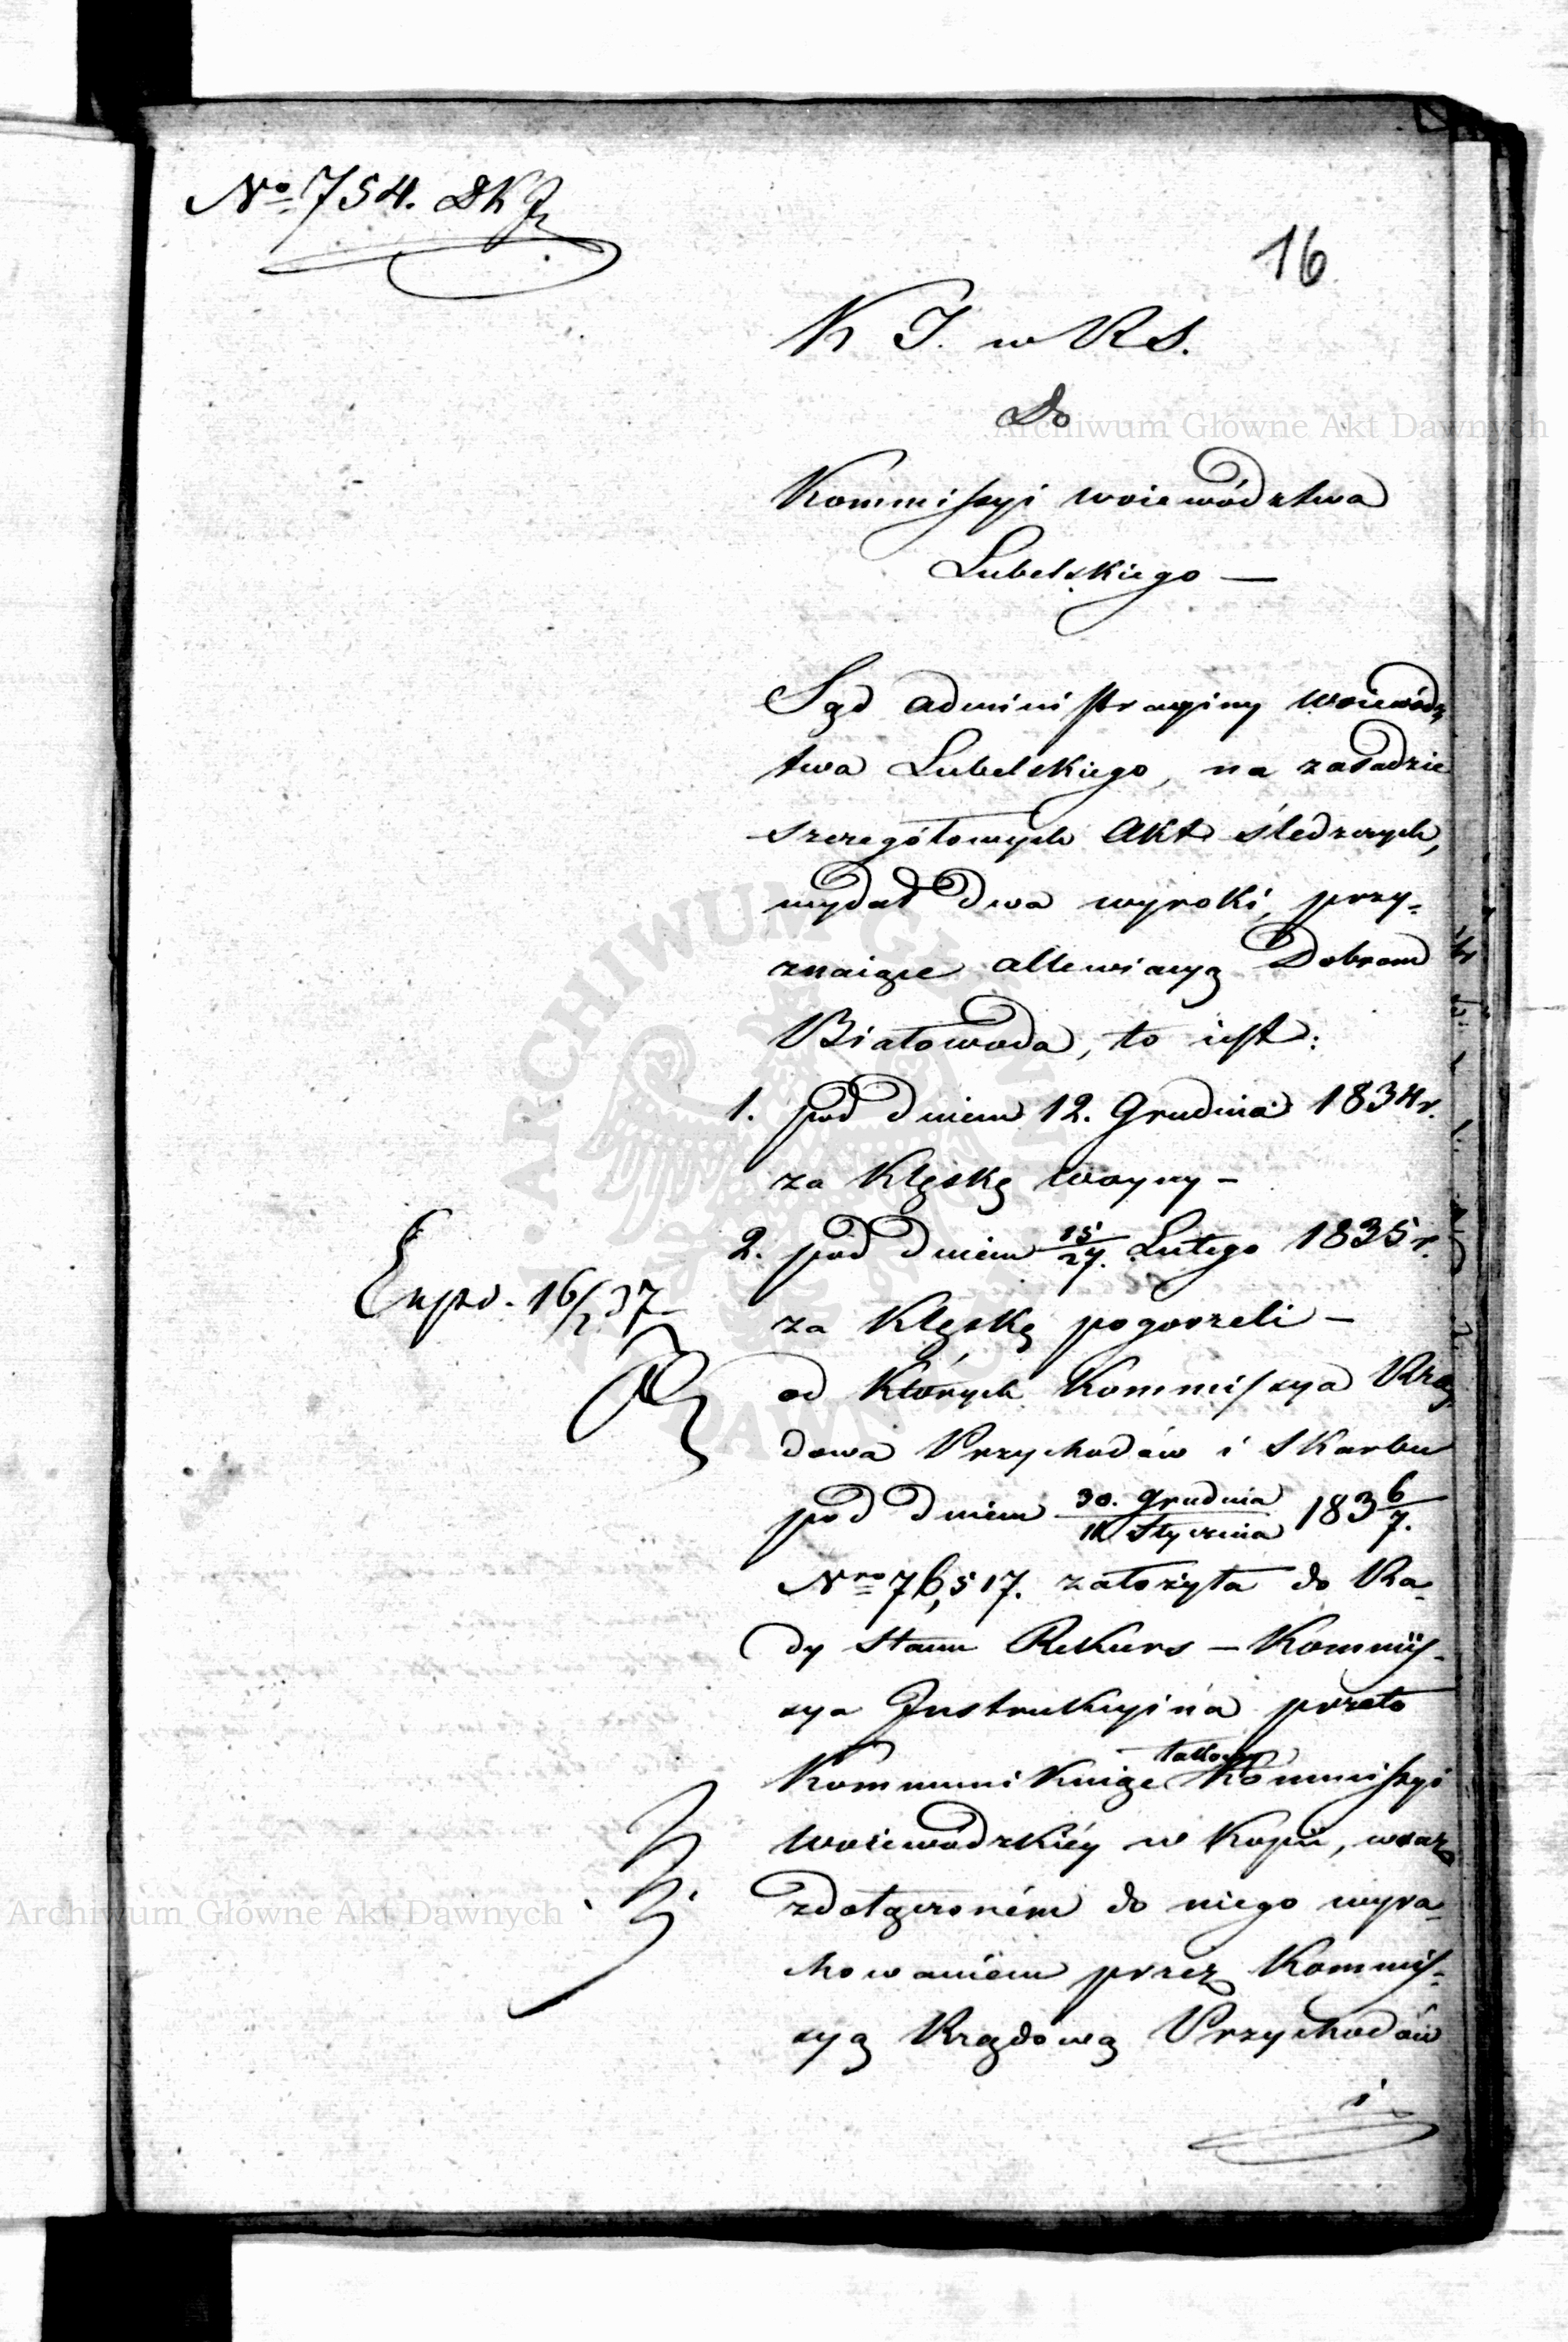 No 754. DKJ
16
K J. w RS.
Do
Kommissyi Woiewództwa
Lubelskiego —
Sąd administracyiny Woiewódz
twa Lubelskiego, na zasadzie
szczegółowych Akt śledczych,
wydał dwa wyroki, przy-
znaiące allewiacyą Dobrom
Białowoda, to iest:
1. pod dniem 12. Grudnia 1834 r.
za klęskę woyny —
2. pod dniem 15/27. Lutego 1835 r.
za klęskę pogorzeli —
Exped. 16/1 37
od których Kommissya Rzą
dowa Przychodów i Skarbu
pod dniem 30. Grudnia/11 Stycznia 1836/7.
Nro 76,517. założyła do Ra-
dy Stanu Rekurs — Kommis-
sya Instrukcyina przeto
Kommunikuiąc takowy Kommissyi
Woiewódzkiéy w kopii, wraz
z dołączoném do niego wyra-
chowaniem przez Kommis-
syą Rządową Przychodów
i
Archiwum Główne Akt Dawnych
Archiwum Główne Akt Dawnych